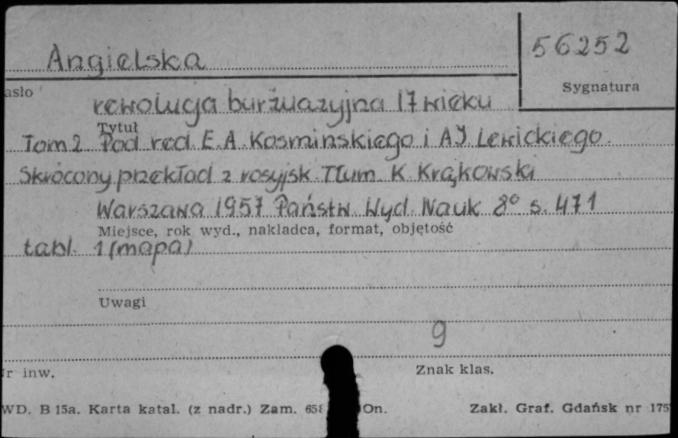 Angielska
56252
asło
Sygnatura
rewolucja burżuazyjna 17 wieku
Tytuł
Tom 2 Pod red. E. A. Kosminskiego i A J. Lewickiego.
Skrócony przekład z rosyjsk. Tłum. K. Krąkowski
Warszawa 1957 Państw. Wyd. Nauk. 8° s. 471
Miejsce, rok wyd., nakładca, format, objętość
tabl. 1 (mapa)
Uwagi
9
r inw.
Znak klas.
WD. B 15a. Karta katal. (z nadr.) Zam. 65 On. Zakł. Graf. Gdańsk nr 175